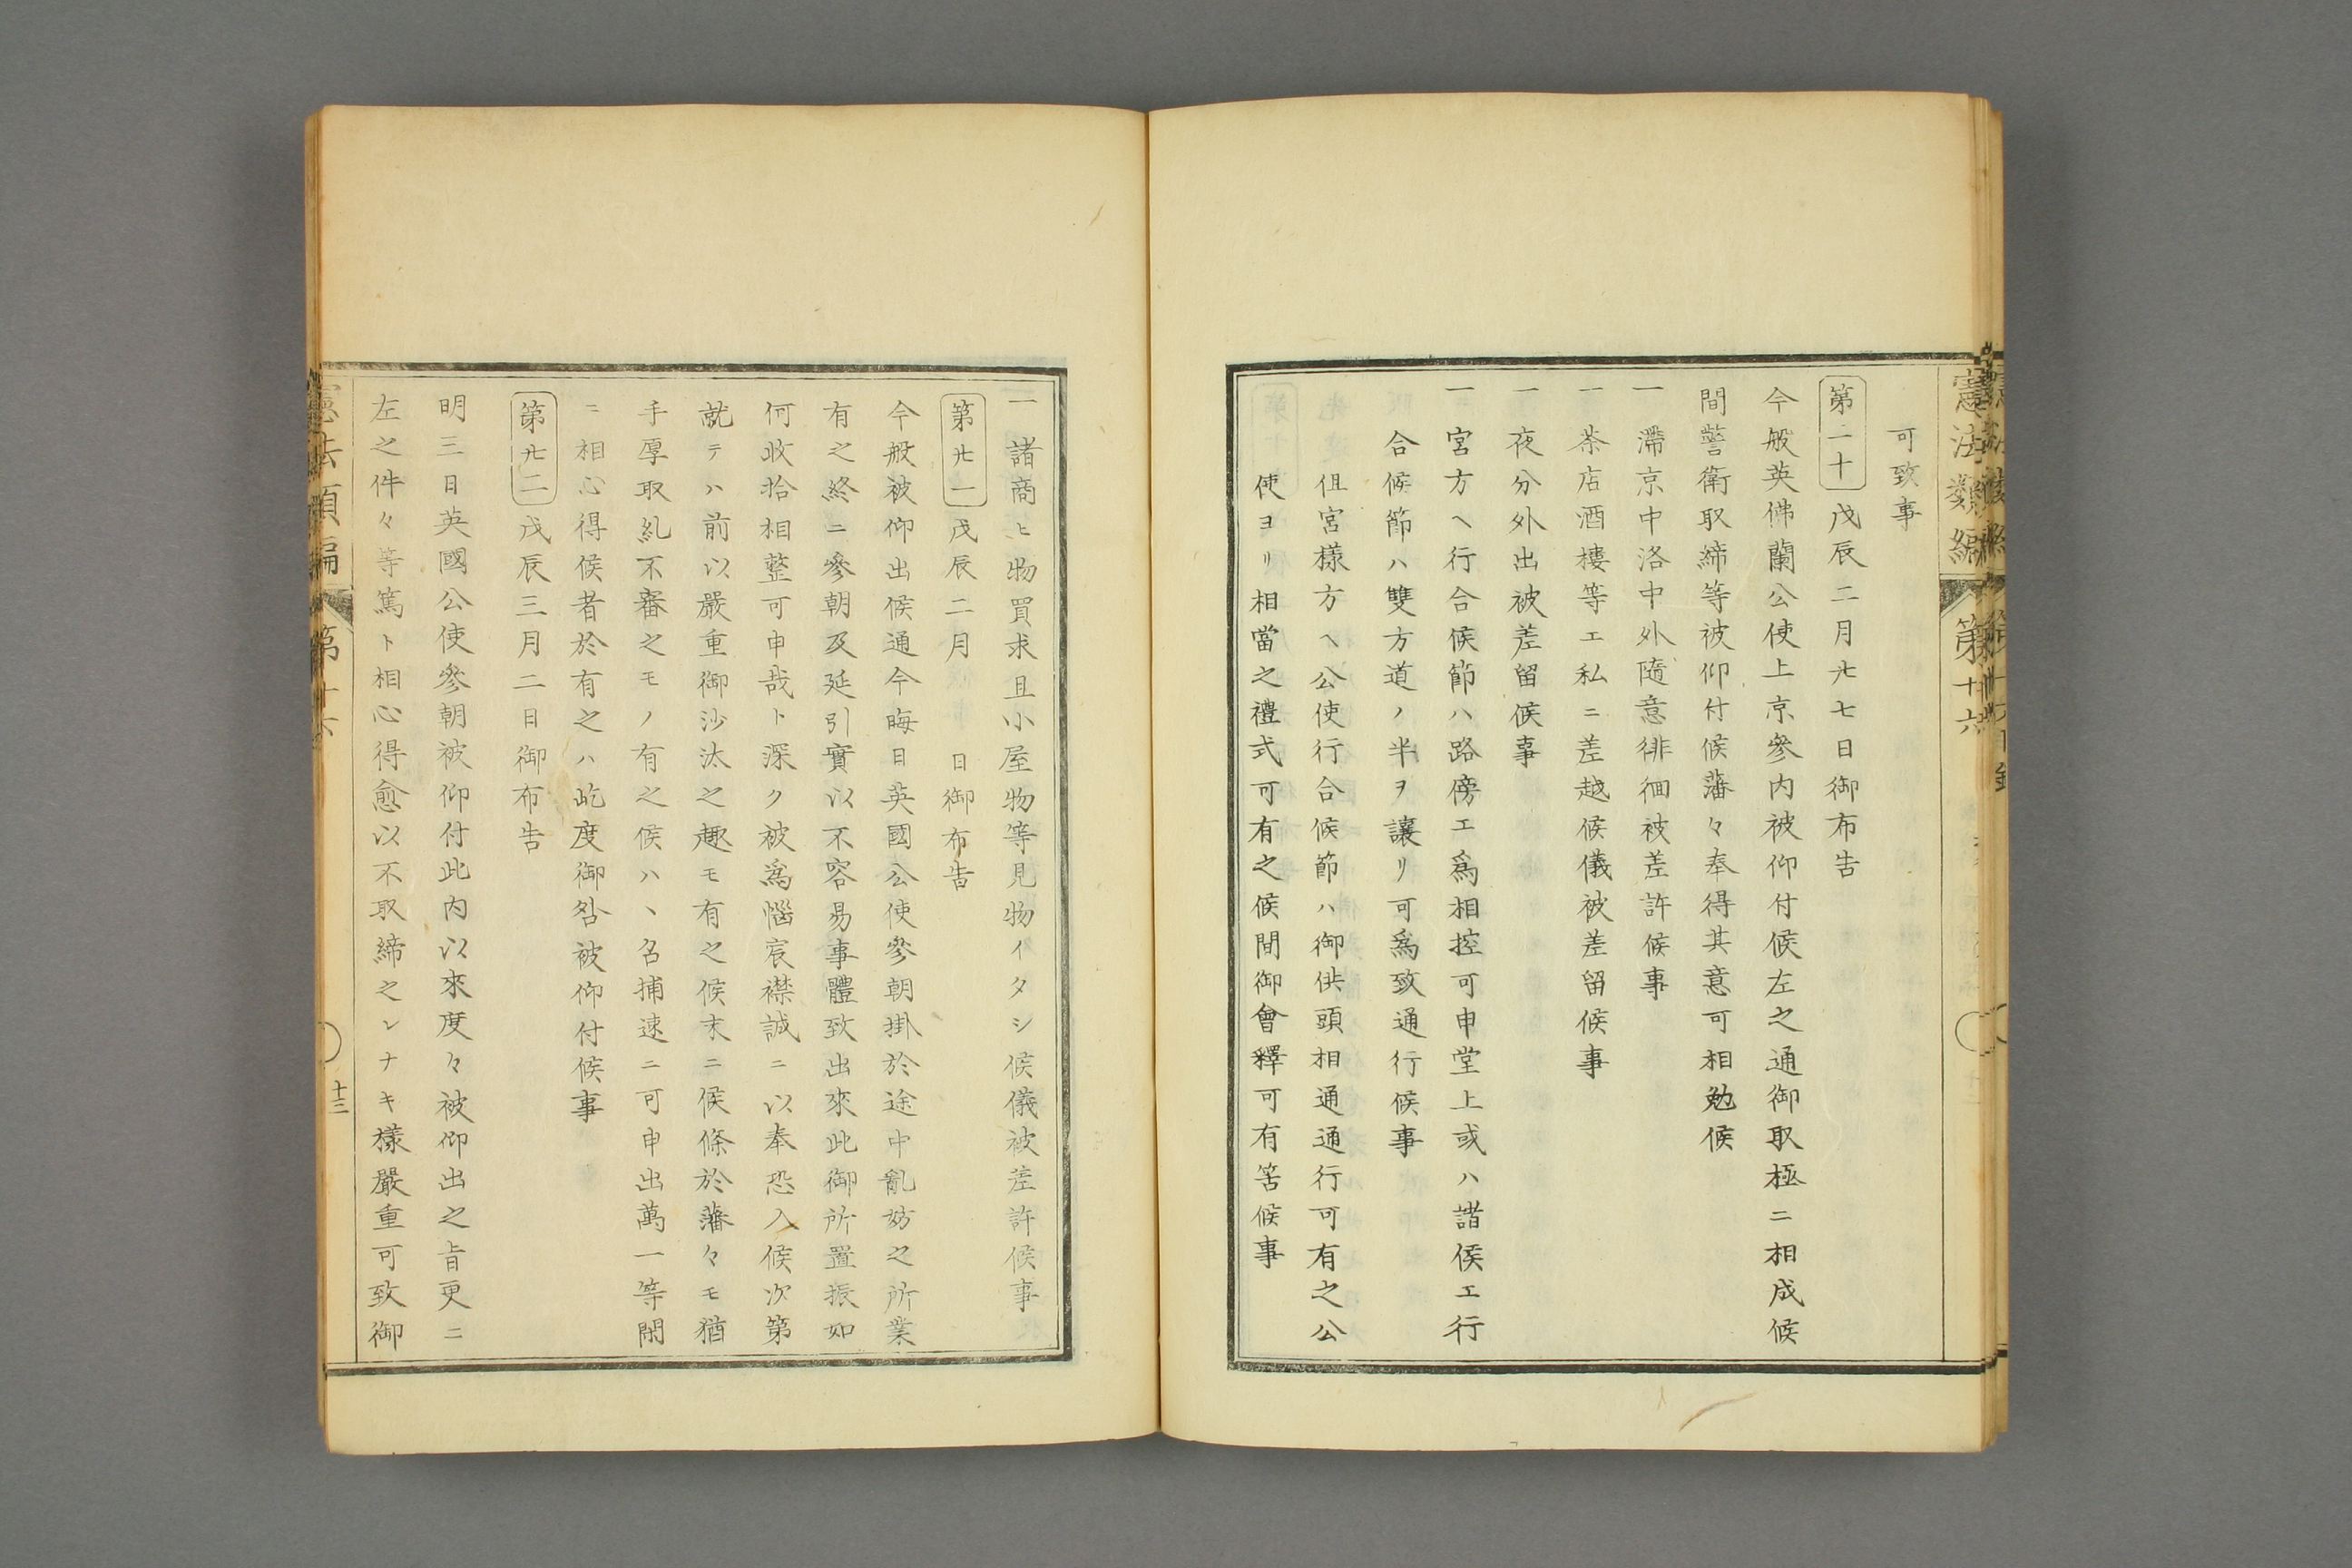 憲法類編 第十六
可致事
第二十 戊辰二月廿七日御布告
今般英佛蘭公使上京參内被仰付候左之通御取極ニ相成候
間警衛取締等被仰付候藩々奉得其意可相勉候
一 滯京中洛中外隨意徘徊被差許候事
一 茶店酒樓等エ私ニ差越候儀被差留候事
一 夜分外出被差留候事
一 宮方ヘ行合候節ハ路傍エ爲相控可申堂上或ハ諸侯エ行
合候節ハ雙方道ノ半ヲ讓リ可爲致通行候事
但宮樣方ヘ公使行合候節ハ御供頭相通通行可有之公
使ヨリ相當之禮式可有之候間御會釋可有筈候事
一 諸商ヒ物買求且小屋物等見物イタシ候儀被差許候事
第廿一 戊辰二月 日御布告
今般被仰出候通今晦日英國公使參朝掛於途中亂妨之所業
有之終ニ參朝及延引實以不容易事體致出來此御所置振如
何收拾相整可申哉ト深ク被爲惱宸襟誠ニ以奉恐入候次第
就テハ前以嚴重御沙汰之趣モ有之候末ニ候條於藩々モ猶
手厚取糺不審之モノ有之候ハヽ召捕速ニ可申出萬一等閑
ニ相心得候者於有之ハ屹度御咎被仰付候事
第廿二 戊辰三月二日御布告
明三日英國公使參朝被仰付此内以來度々被仰出之旨更ニ
左之件々等篤ト相心得愈以不取締之レナキ樣嚴重可致御
憲法類編 第十六 十三